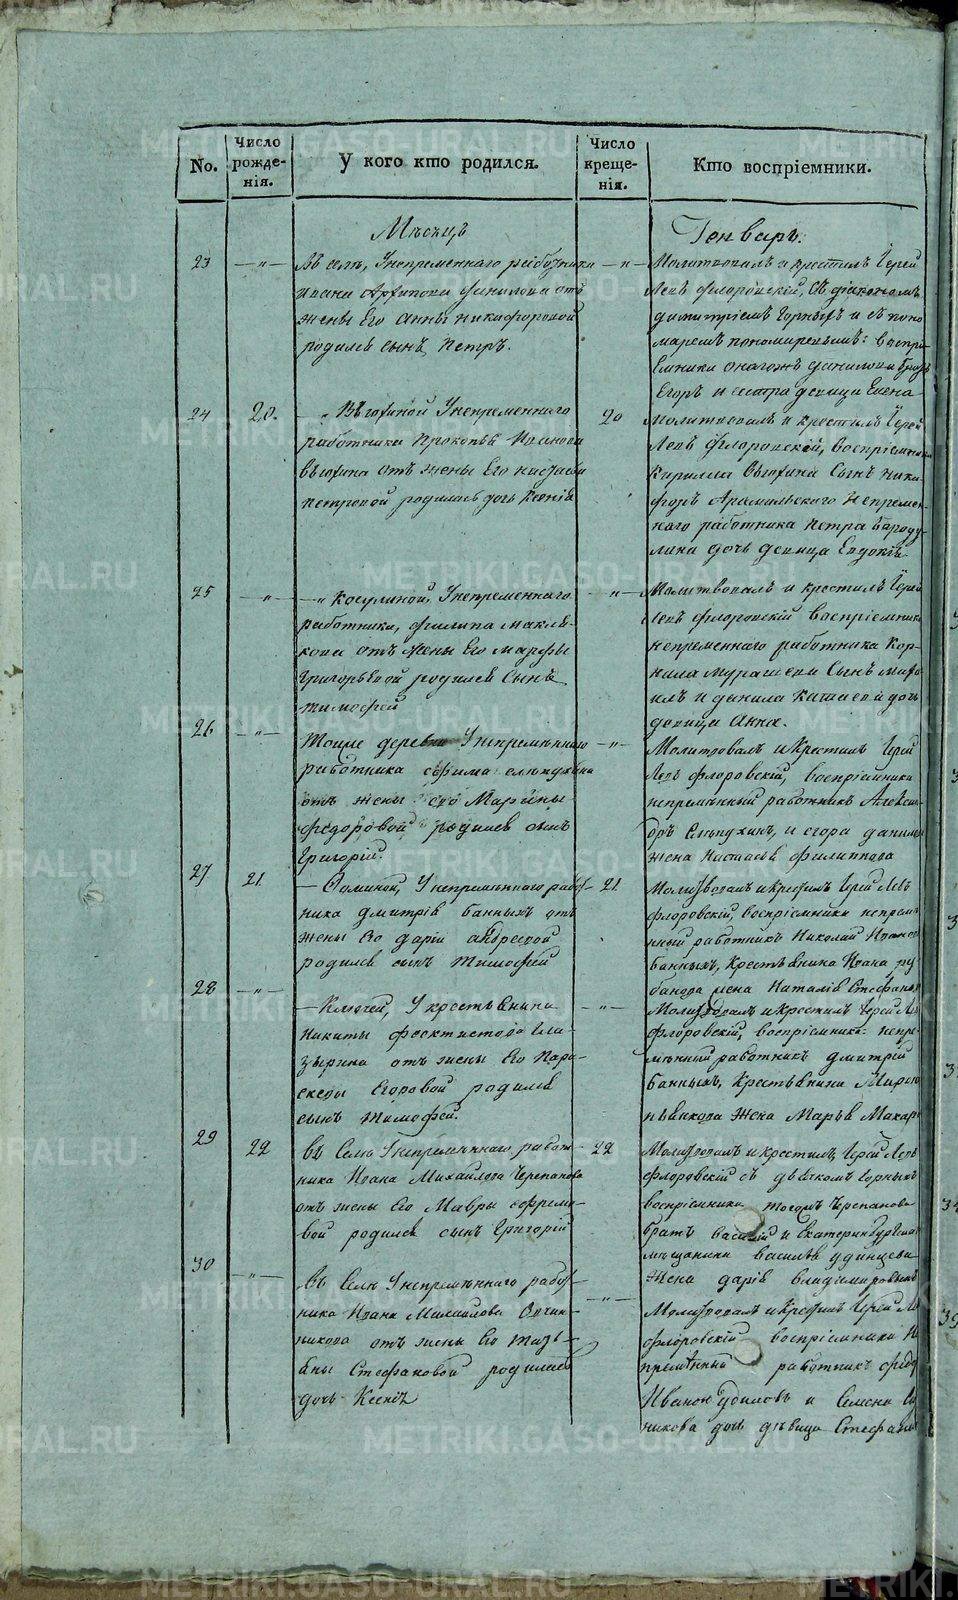 No.
Число рожде-нія.
У кого кто родился.
Число креще-нія.
Кто воспріемники.
Мѣсяцъ
Генварь.
23 — „ —
Въ селѣ, У непременнаго работника
Ивана Архипова Данилова отъ
жены Его Анны Никифоровой
родился сынъ Петръ.
— „ —
Молитвовалъ и крестилъ Іерей
Левъ Флоровскій, съ діакономъ
Димитріемъ Горныхъ и съ поно
маремъ Пономаревымъ: воспрі-
Емники онагожъ Данилова братъ
Егоръ и сестра девица Елена
24 20.
„ Въ
У непременнаго
работника Прокопья Иванова
отъ жены Его Настасьи
Петровой родилась дочь Ксенія
20
Молитвовалъ и крестилъ Іерей
Левъ Флоровскій, воспріемники
Кирилла
сынъ Ники-
форъ Арамильскаго непремен-
наго работника Петра Бароду-
лина дочь девица Евдокія.
25 „
— „ Косулиной, У непременнаго
работника, Филипа
отъ жены Его Марфы
Григорьевой родился Сынъ
Тимофей
— „ —
Молитвовалъ и крестилъ Іерей
Левъ Флоровскій воспріемники
непременнаго работника Кор-
нила
Сынъ Миха-
илъ и Данила
дочь
девица Анна.
26 — „ —
Тойже деревни У непремѣннаго
работника Ефима Елпухина
отъ жены его Марины
Федоровой родился сынъ
Григорій
— „ —
Молитвовалъ и Крестилъ Іерей
Левъ Флоровскій, воспріемники
непремѣнный работникъ Алексан-
дръ Елпухинъ, и Егора Данилова
жена Настасья Филиппова
27 21.
У непремѣннаго работ-
ника Дмитрія Банныхъ отъ
жены Его Даріи Андреевой
родился сынъ Тимофей
21
Молитвовалъ и Крестилъ Іерей Левъ
Флоровскій, воспріемники непремѣ
нный работникъ Николай Иванов
Банныхъ, Крестьянина Ивана Ру
банова жена Наталія Стефанов
28 — „ —
— Ключей, У крестьянина
Никиты Феоктистова Гла-
зырина отъ жены Его Пара-
скевы Егоровой родился
сынъ Тимофей.
— „ —
Молитвовалъ и Крестилъ Іерей Левъ
Флоровскій, воспріемники: непре
мѣнный работникъ Дмитрій
Банныхъ, Крестьянина Мирона
жена Марья Макар
29 22
Въ Селѣ У непремѣннаго работ-
ника Ивана Михайлова Черепанова
отъ жены Его Мавры Ефремо-
вой родился сынъ Григорій
22
Молитвовалъ и крестилъ Іерей Левъ
Флоровскій съ дьячкомъ Горныхъ
воспріемники тогожъ Черепанова
братъ Василій и Екатеринбургскаго
мѣщанина Василья Удинцева
жена Дарія Владимировыхъ
30 — „ —
Въ Селѣ У непремѣннаго работ-
ника Ивана Михайлова Овчин-
никова отъ жены Его Тать-
яны Стефановой родилась
дочь Ксенія
— „ —
Молитвовалъ и Крестилъ Іерей Ле
Флоровскій воспріемники Не
премѣнный работникъ Федо
и Семена Ов
никова дочь дѣвица Стефани